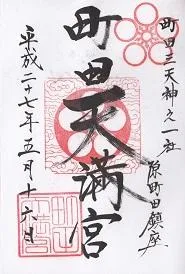 町田三天神之一社
原町田鎮座
町田天満宮
平成二十七年五月十六日